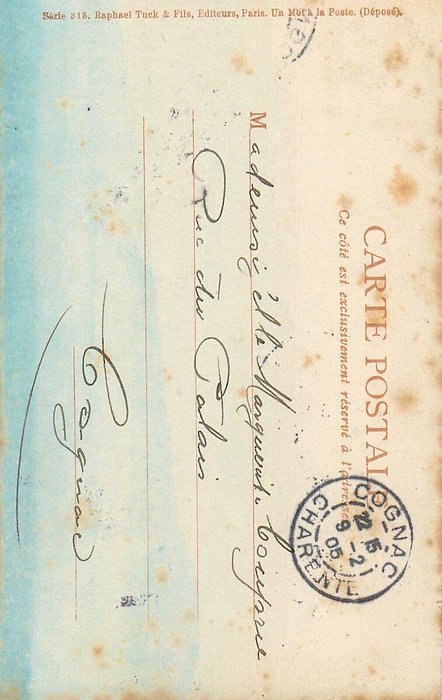 Série 818. Raphael Tuck & Fils, Editeurs, Paris. Un Mot à la Poste. (Déposé).
CARTE POSTALE
Ce côté est exclusivement réservé à l'adresse
COGNAC
22 15
9 -2
05
CHARENTE
Mademoiselle Marguerite
Rue du Palais
Cognac